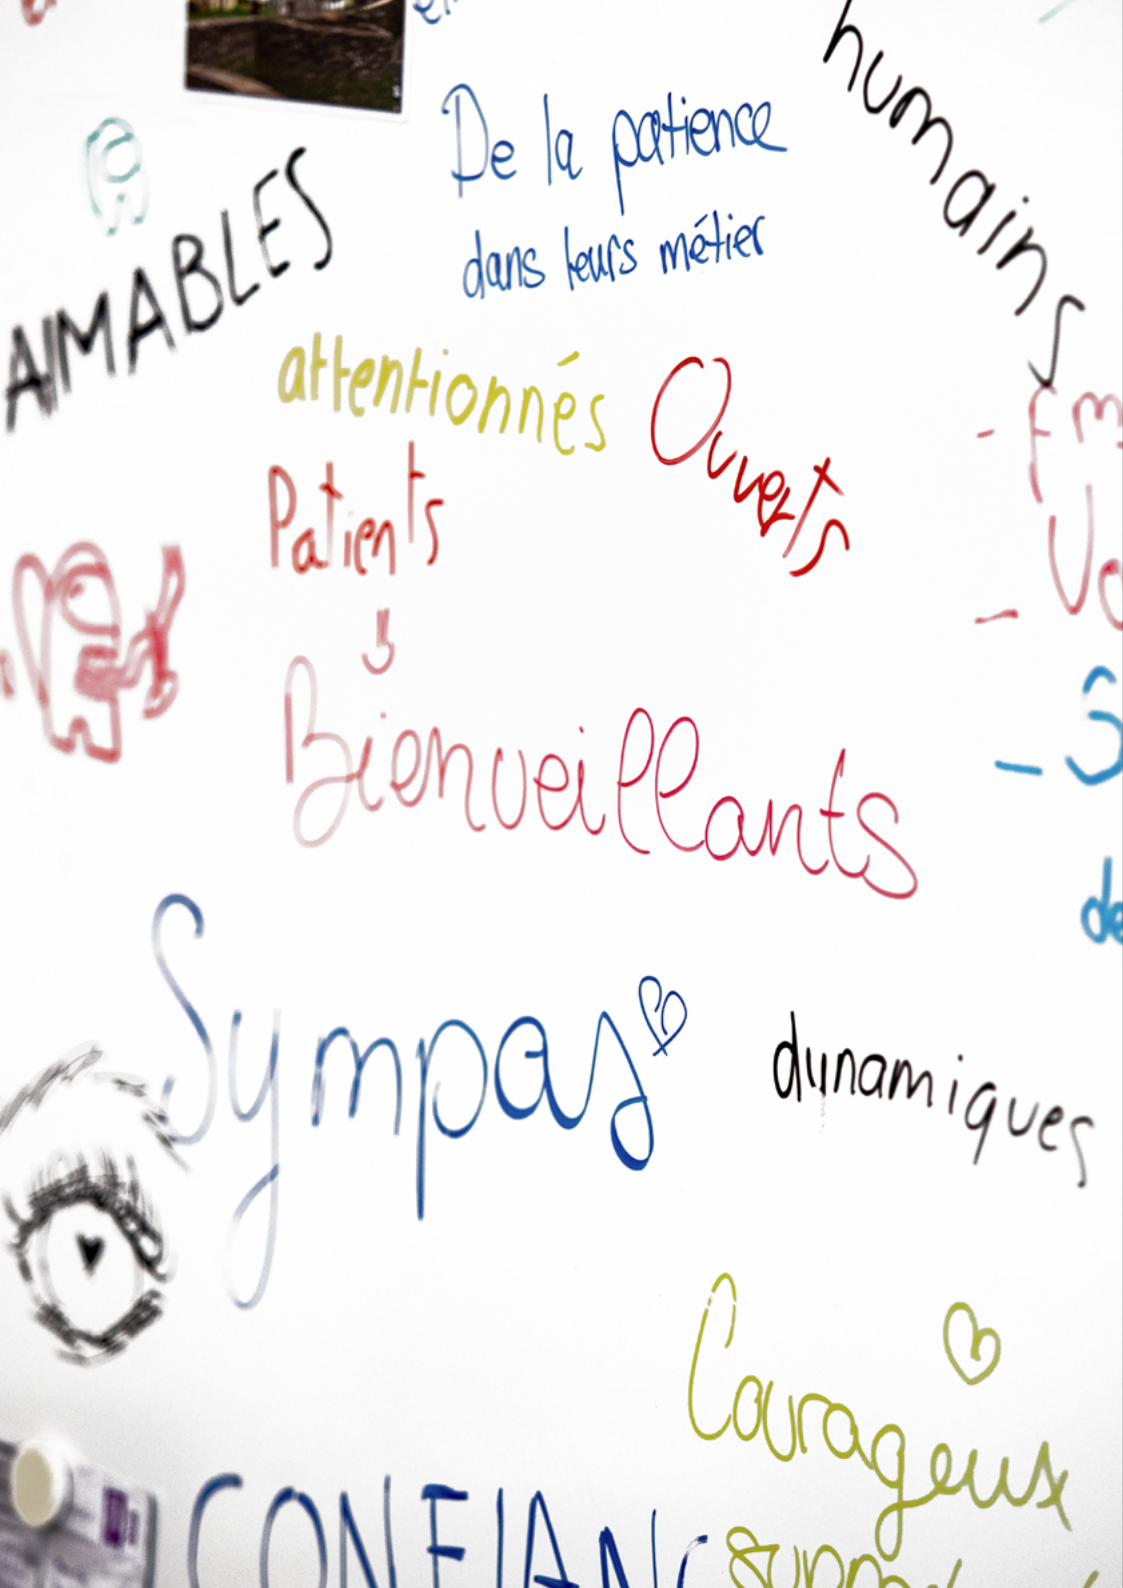 humains
De la patience
dans leurs métier
AIMABLES
attentionnés
Ouverts
Patients
Bienveillants
Sympas
dynamiques
Courageux